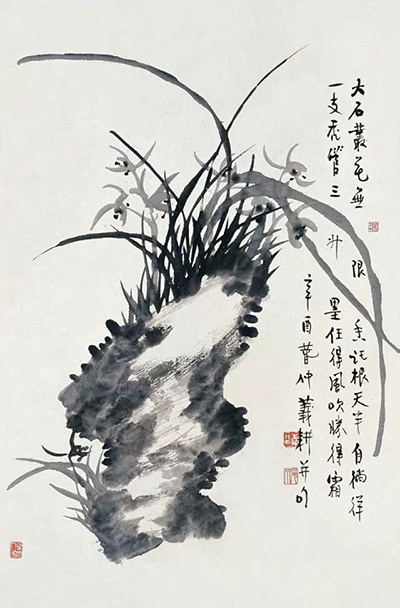 大石叢花無限香託根天半自徜徉
一支禿管三升墨任得風吹勝得霜
辛酉春仲義耕并句